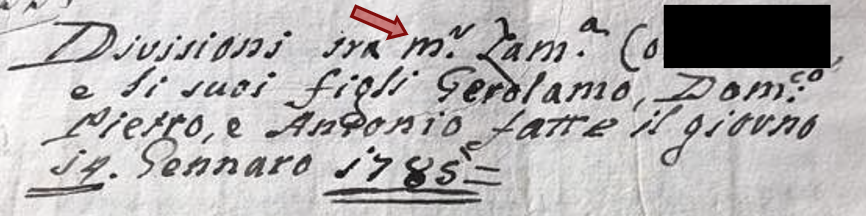 Divisioni tra m.r Zam.a Co
e li suoi figli Gerolamo, Dom.co,
Pietro, e Antonio fatte il giorno
14. Gennaro 1785=